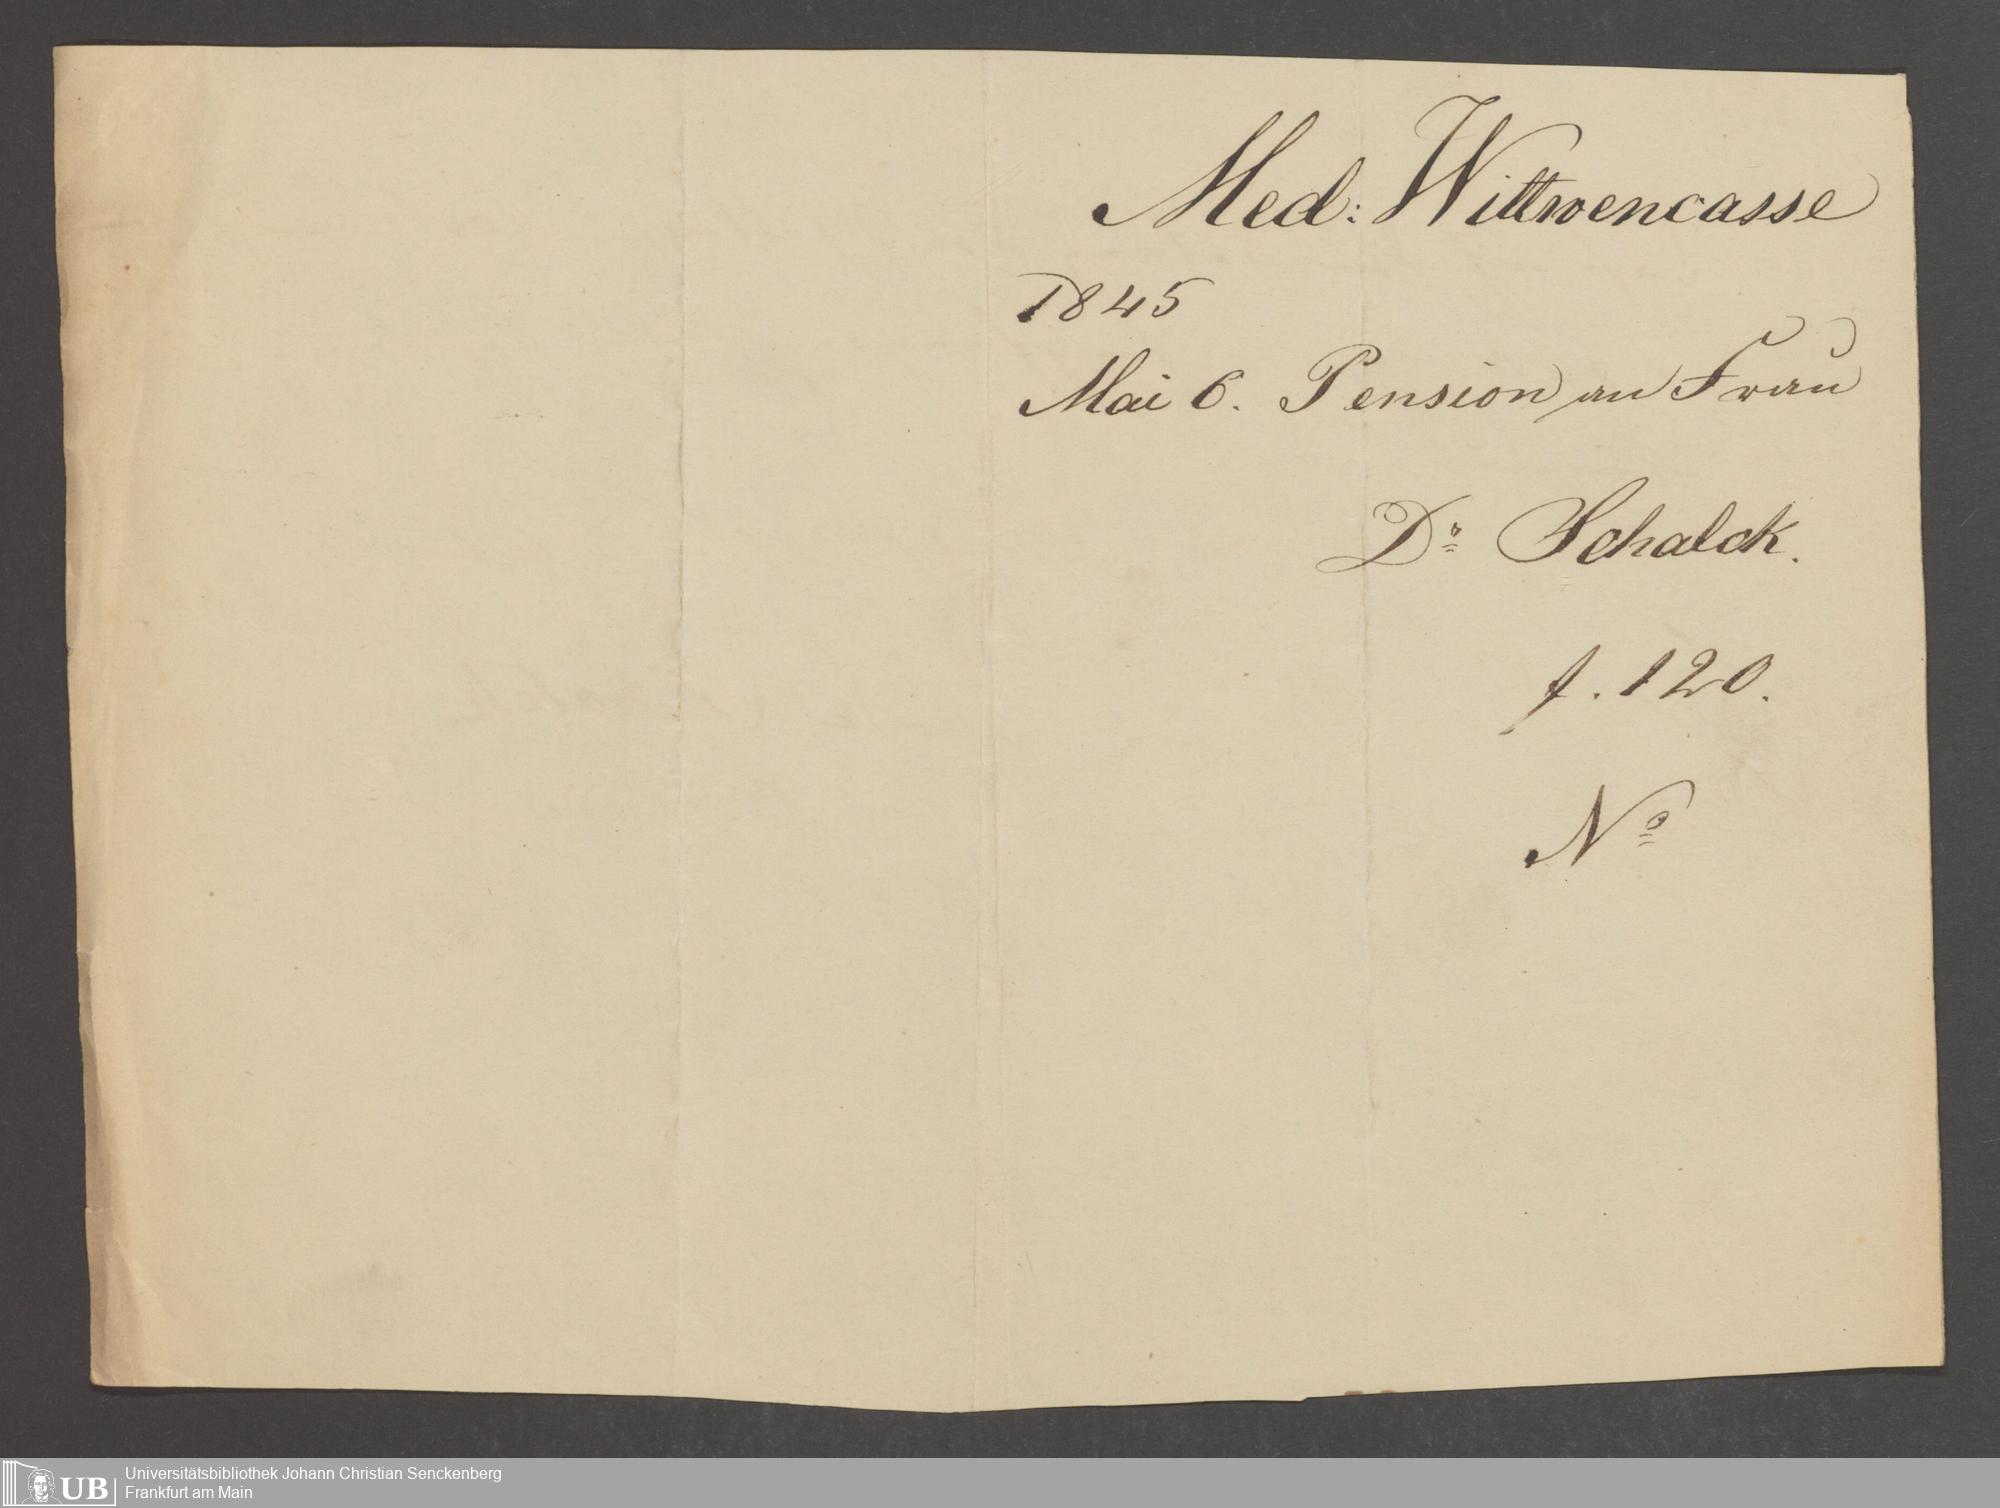 Med: Wittwencasse
1845
Mai 6. Pension an Frau
Dr Schalck.
f. 120.
No
UB Universitätsbibliothek Johann Christian Senckenberg
Frankfurt am Main